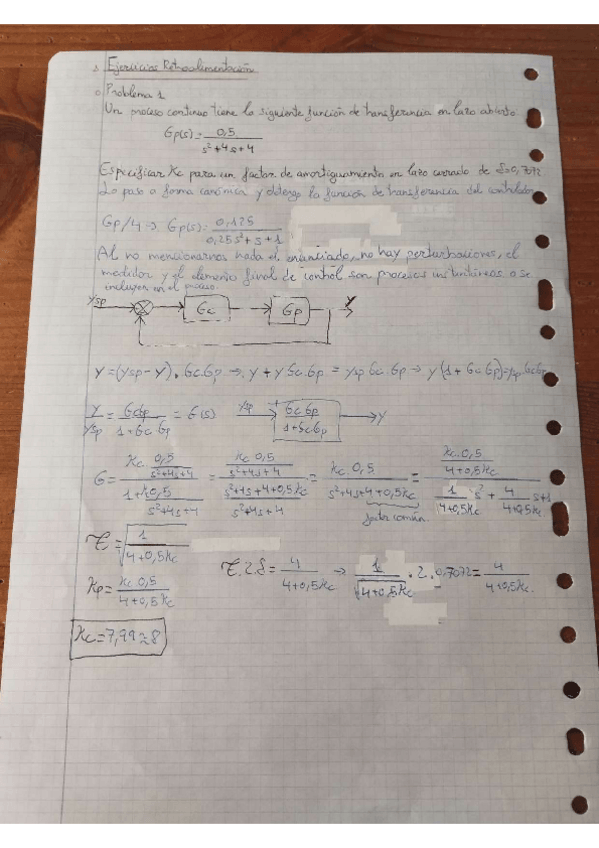 Ejercicios Retroalimentación
Problema 1
Un proceso continuo tiene la siguiente función de transferencia en lazo abierto
Gp(s) = 0,5 / s²+4s+4
Especificar Kc para un factor de amortiguamiento en lazo cerrado de δ=0,7072
Lo paso a forma canónica y obtengo la función de transferencia del controlador
Gp/4 → Gp(s) = 0,125 / 0,25s²+s+1
Al no mencionarnos nada el enunciado, no hay perturbaciones, el
medidor y el elemento final de control son procesos instantáneos o se
incluyen en el proceso.
ysp Gc Gp y
y = (ysp - y) · Gc Gp → y + y Gc · Gp = ysp Gc · Gp → y (1 + Gc Gp) = ysp · Gc Gp
y / ysp = Gc Gp / 1 + Gc Gp = G(s) ysp + Gc Gp / 1+Gc Gp y
G = (Kc 0,5 / s²+4s+4) / (1+K0,5 / s²+4s+4) = (Kc 0,5 / s²+4s+4) / (s²+4s+4+0,5Kc / s²+4s+4) = Kc · 0,5 / s²+4s+4+0,5Kc = (Kc · 0,5 / 4+0,5Kc) / (1 / 4+0,5Kc s² + 4 / 4+0,5Kc s+1)
factor común
τ = √(1 / 4+0,5Kc)
τ · 2 δ = 4 / 4+0,5Kc → 1 / √4+0,5Kc · 2 · 0,7072 = 4 / 4+0,5Kc
Kp = Kc 0,5 / 4+0,5Kc
Kc = 7,99 ≈ 8